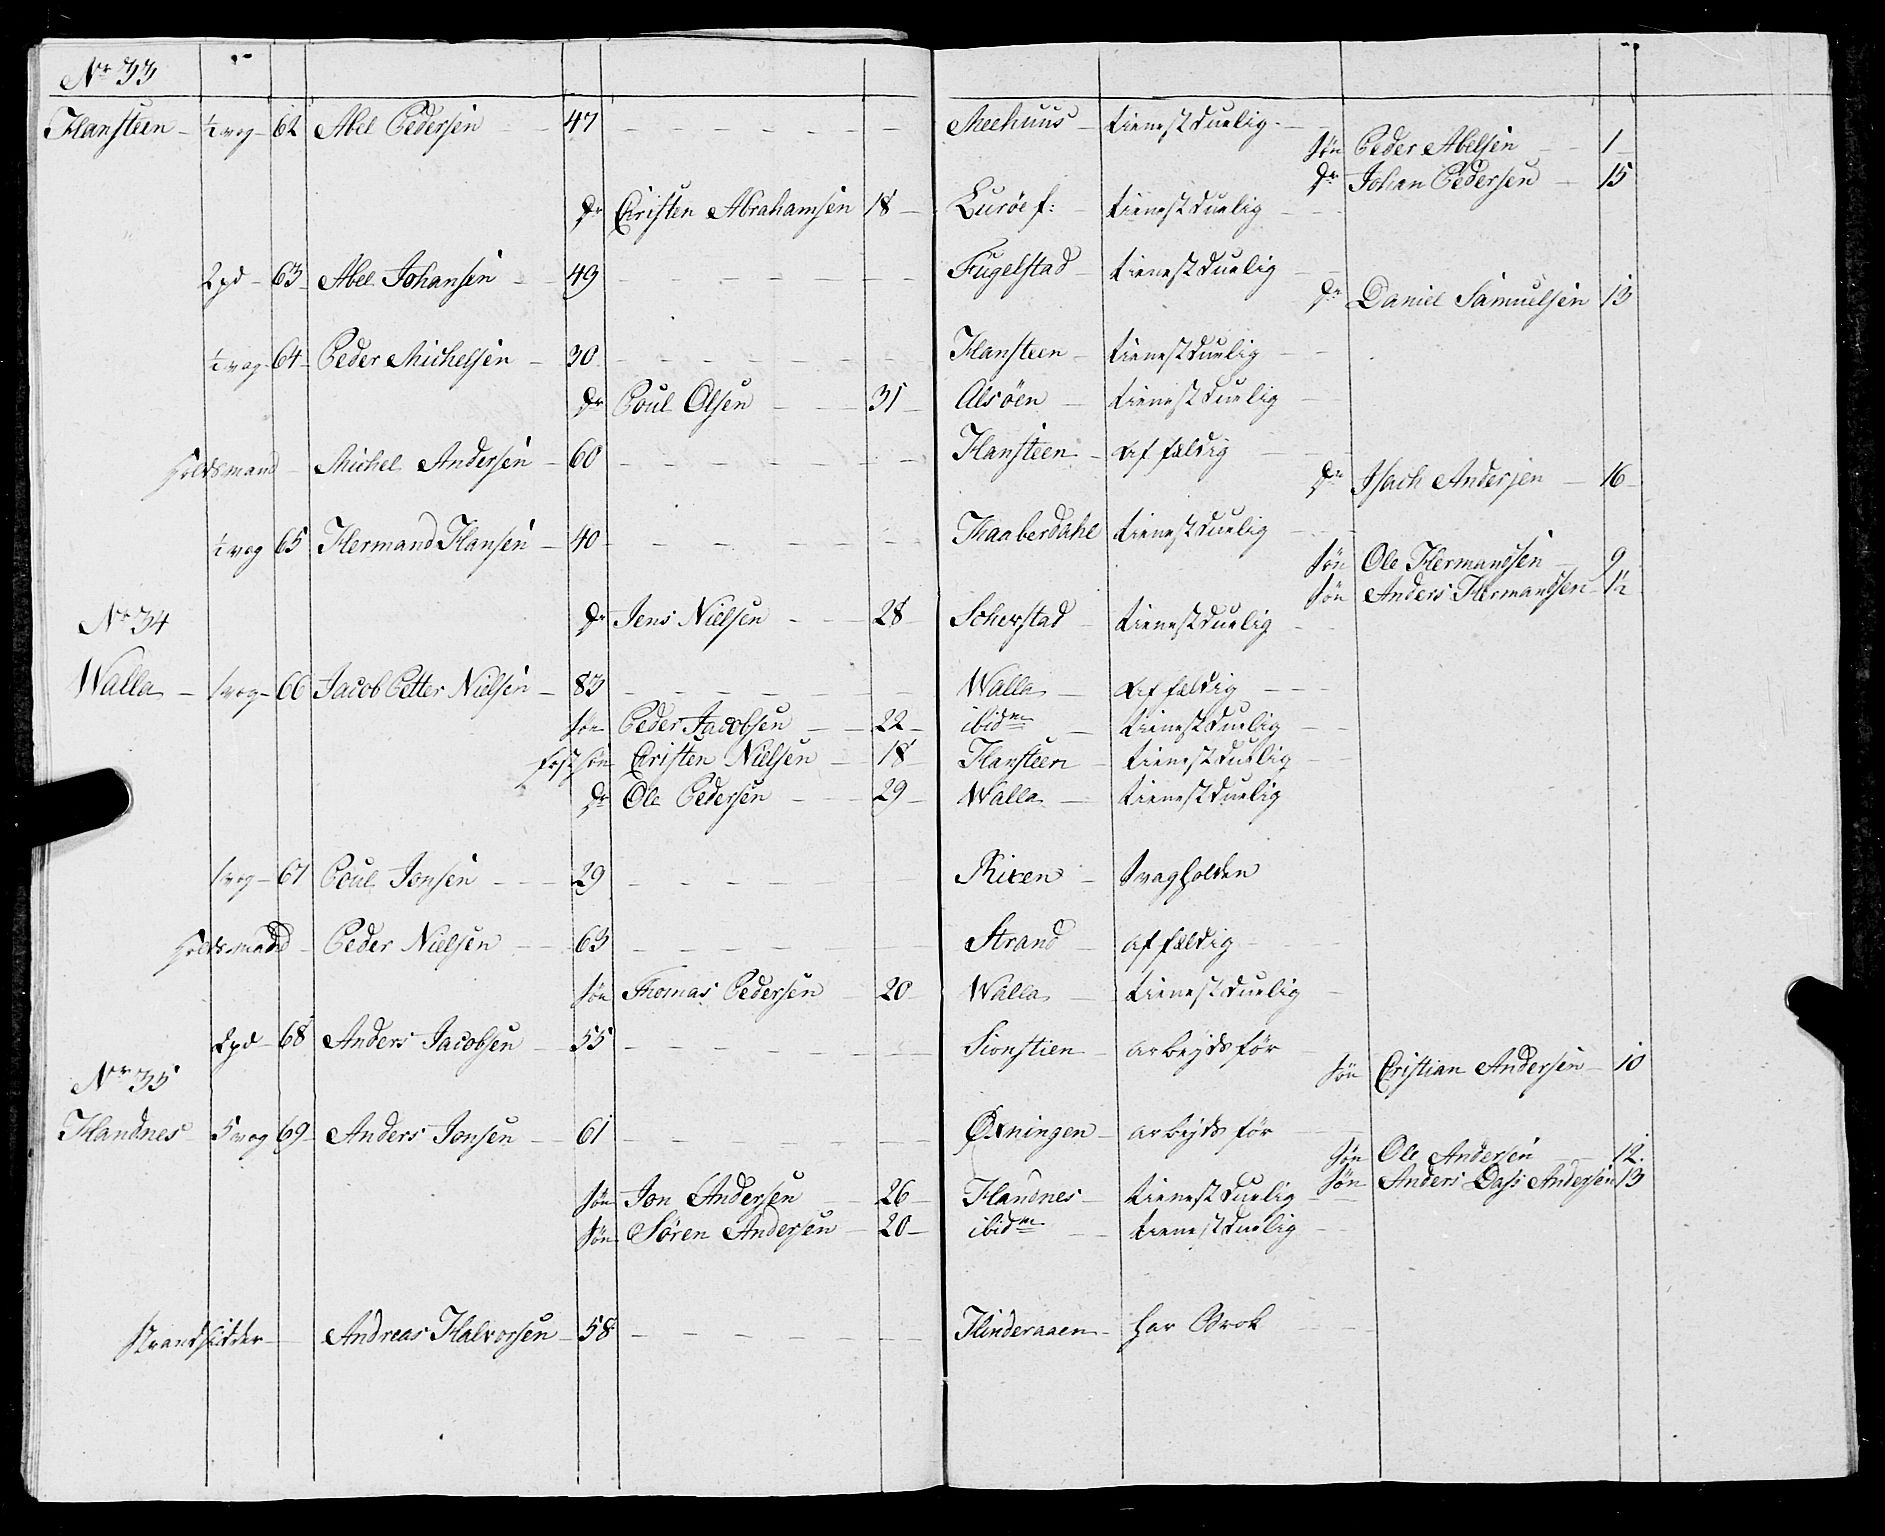 Nr 33
Hansteen - ½ vog - 62 Abel Pedersen - 47 - Meehuus - tienestduelig -
søn Peder Abelsen - 1
Dr Johan Pedersen - 15
Dr Christen Abrahamsen 18 - Lurøe f: - tienestduelig -
2 pd - 63 Abel Johansen - 49 - Fugelstad - tienestduelig -
Dr Daniel Samuelsen 13
½ vog - 64 Peder Michelsen - 30 - Hansteen - tienestduelig -
Dr Poul Olsen - 31 - Alsøen - tienestduelig -
Holdsmand - Michel Andersen - 60 - Hansteen - affældig -
Dr Isach Andersen - 16 -
½ vog 65 Hermand Hansen - 40 - Haaberdahl tienestduelig -
søn Ole Hermandsen - 9
søn Anders Hermandsen - 1½
Nr 34
Dr Jens Nielsen - 28 - Scherstad - tienestduelig -
Walla - 1 vog - 66 Jacob Petter Nielsen - 83 - Walla - affældig -
søn Peder Jacobsen - 22 - ibidm - tienestduelig -
fostsøn Christen Nielsen - 18 - Hansteen - tienestduelig -
Dr Ole Pedersen - 29 - Walla - tienestduelig
1 vog - 67 Poul Jonsen - 29 - tienestduelig
Holdsmand - Peder Nielsen - 63 - Strand - affældig -
søn Thomas Pedersen - 20 - Walla - tienestduelig -
2 pd - 68 Anders Jacobsen - 55 - Sionstien - arbeydsfør
søn Christian Andersen - 10
Nr 35
Handnes - 5 vog 69 - Anders Jonsen - 61 - Øxningen - arbeydsfør
søn Ole Andersen - 12.
søn Anders Dass Andersen 13
søn Jon Andersen - 26 - Handnes - tienestduelig -
søn Søren Andersen - 20 - ibidm - tienestduelig -
Strandsidder - Andreas Halvorsen - 58 - Hinderaaen - har Brok